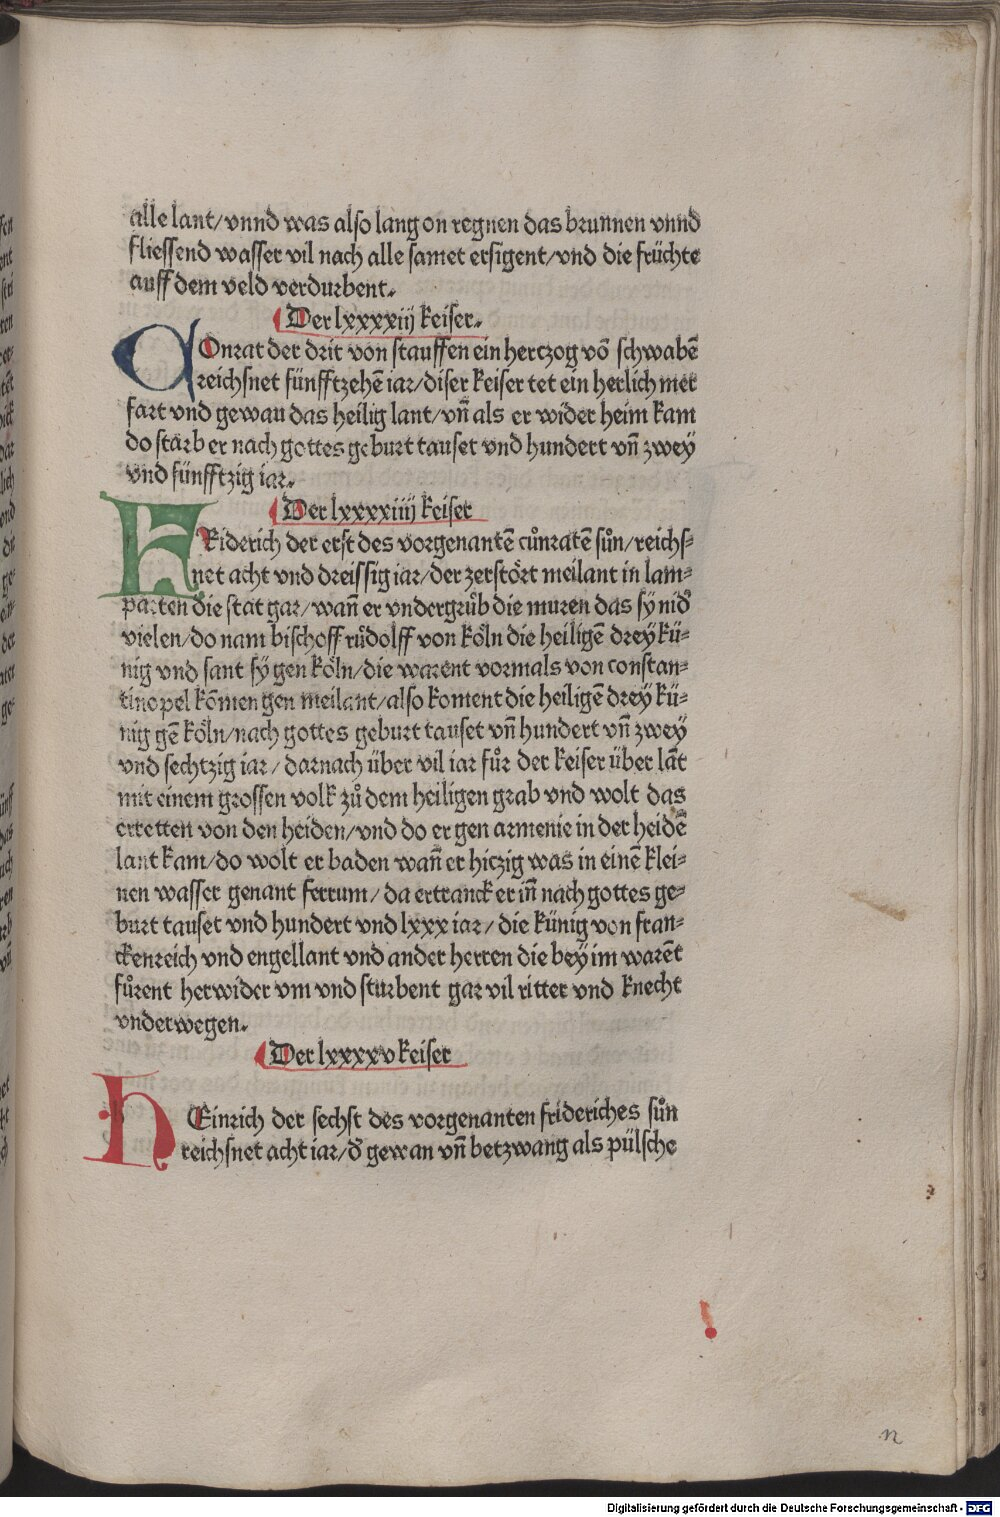 alle lant/vnnd was also lang on regnen das brunnen vnnd
fliessend wasser vil nach alle samet ersigent/vnd die früchte
auff dem veld verdurbent.
Der lxxxxiij keiser.
COnrat der drit von stauffen ein hertzog võ schwabẽ
reichsnet fünfftzehẽ iar/diser keiser tet ein herlich mer
fart vnd gewan das heilig lant/vñ als er wider heim kam
do starb er nach gottes geburt tauset vnd hundert vñ zwey
vnd fünfftzig iar.
Der lxxxxiiij keiser
FRiderich der erst des vorgenantẽ cůnratẽ sůn/reichs⸗
net acht vnd dreissig iar/der zerstört meilant in lam⸗
parten die stat gar/wañ er vndergrůb die muren das sy nid̕
vielen/do nam bischoff růdolff von köln die heiligẽ drey kü⸗
nig vnd fant sy gen köln/die warent vormals von constan⸗
tinopel kõmen gen meilant/also koment die heiligẽ drey kü⸗
nig gẽ köln/nach gottes geburt tauset vñ hundert vñ zwey
vnd sechtzig iar/darnach über vil iar fůr der keiser über lãt
mit einem grossen volk zů dem heiligen grab vnd wolt das
erretten von den heiden/vnd do er gen armenie in der heidẽ
lant kam/do wolt er baden wañ er hitzig was in einẽ klei⸗
nen wasser genant ferrum/da ertranck er iñ nach gottes ge⸗
burt tauset vnd hundert vnd lxxx iar/die künig von fran⸗
ckenreich vnd engellant vnd ander herren die bey im warẽt
fůrent herwider vm vnd sturbent gar vil ritter vnd knecht
vnderwegen.
Der lxxxxv keiser
HEinrich der sechst des vorgenanten frideriches sůn
reichsnet acht iar/d̕ gewan vñ betzwang als pülsche
n
Digitalisierung gefördert durch die Deutsche Forschungsgemeinschaft - DFG